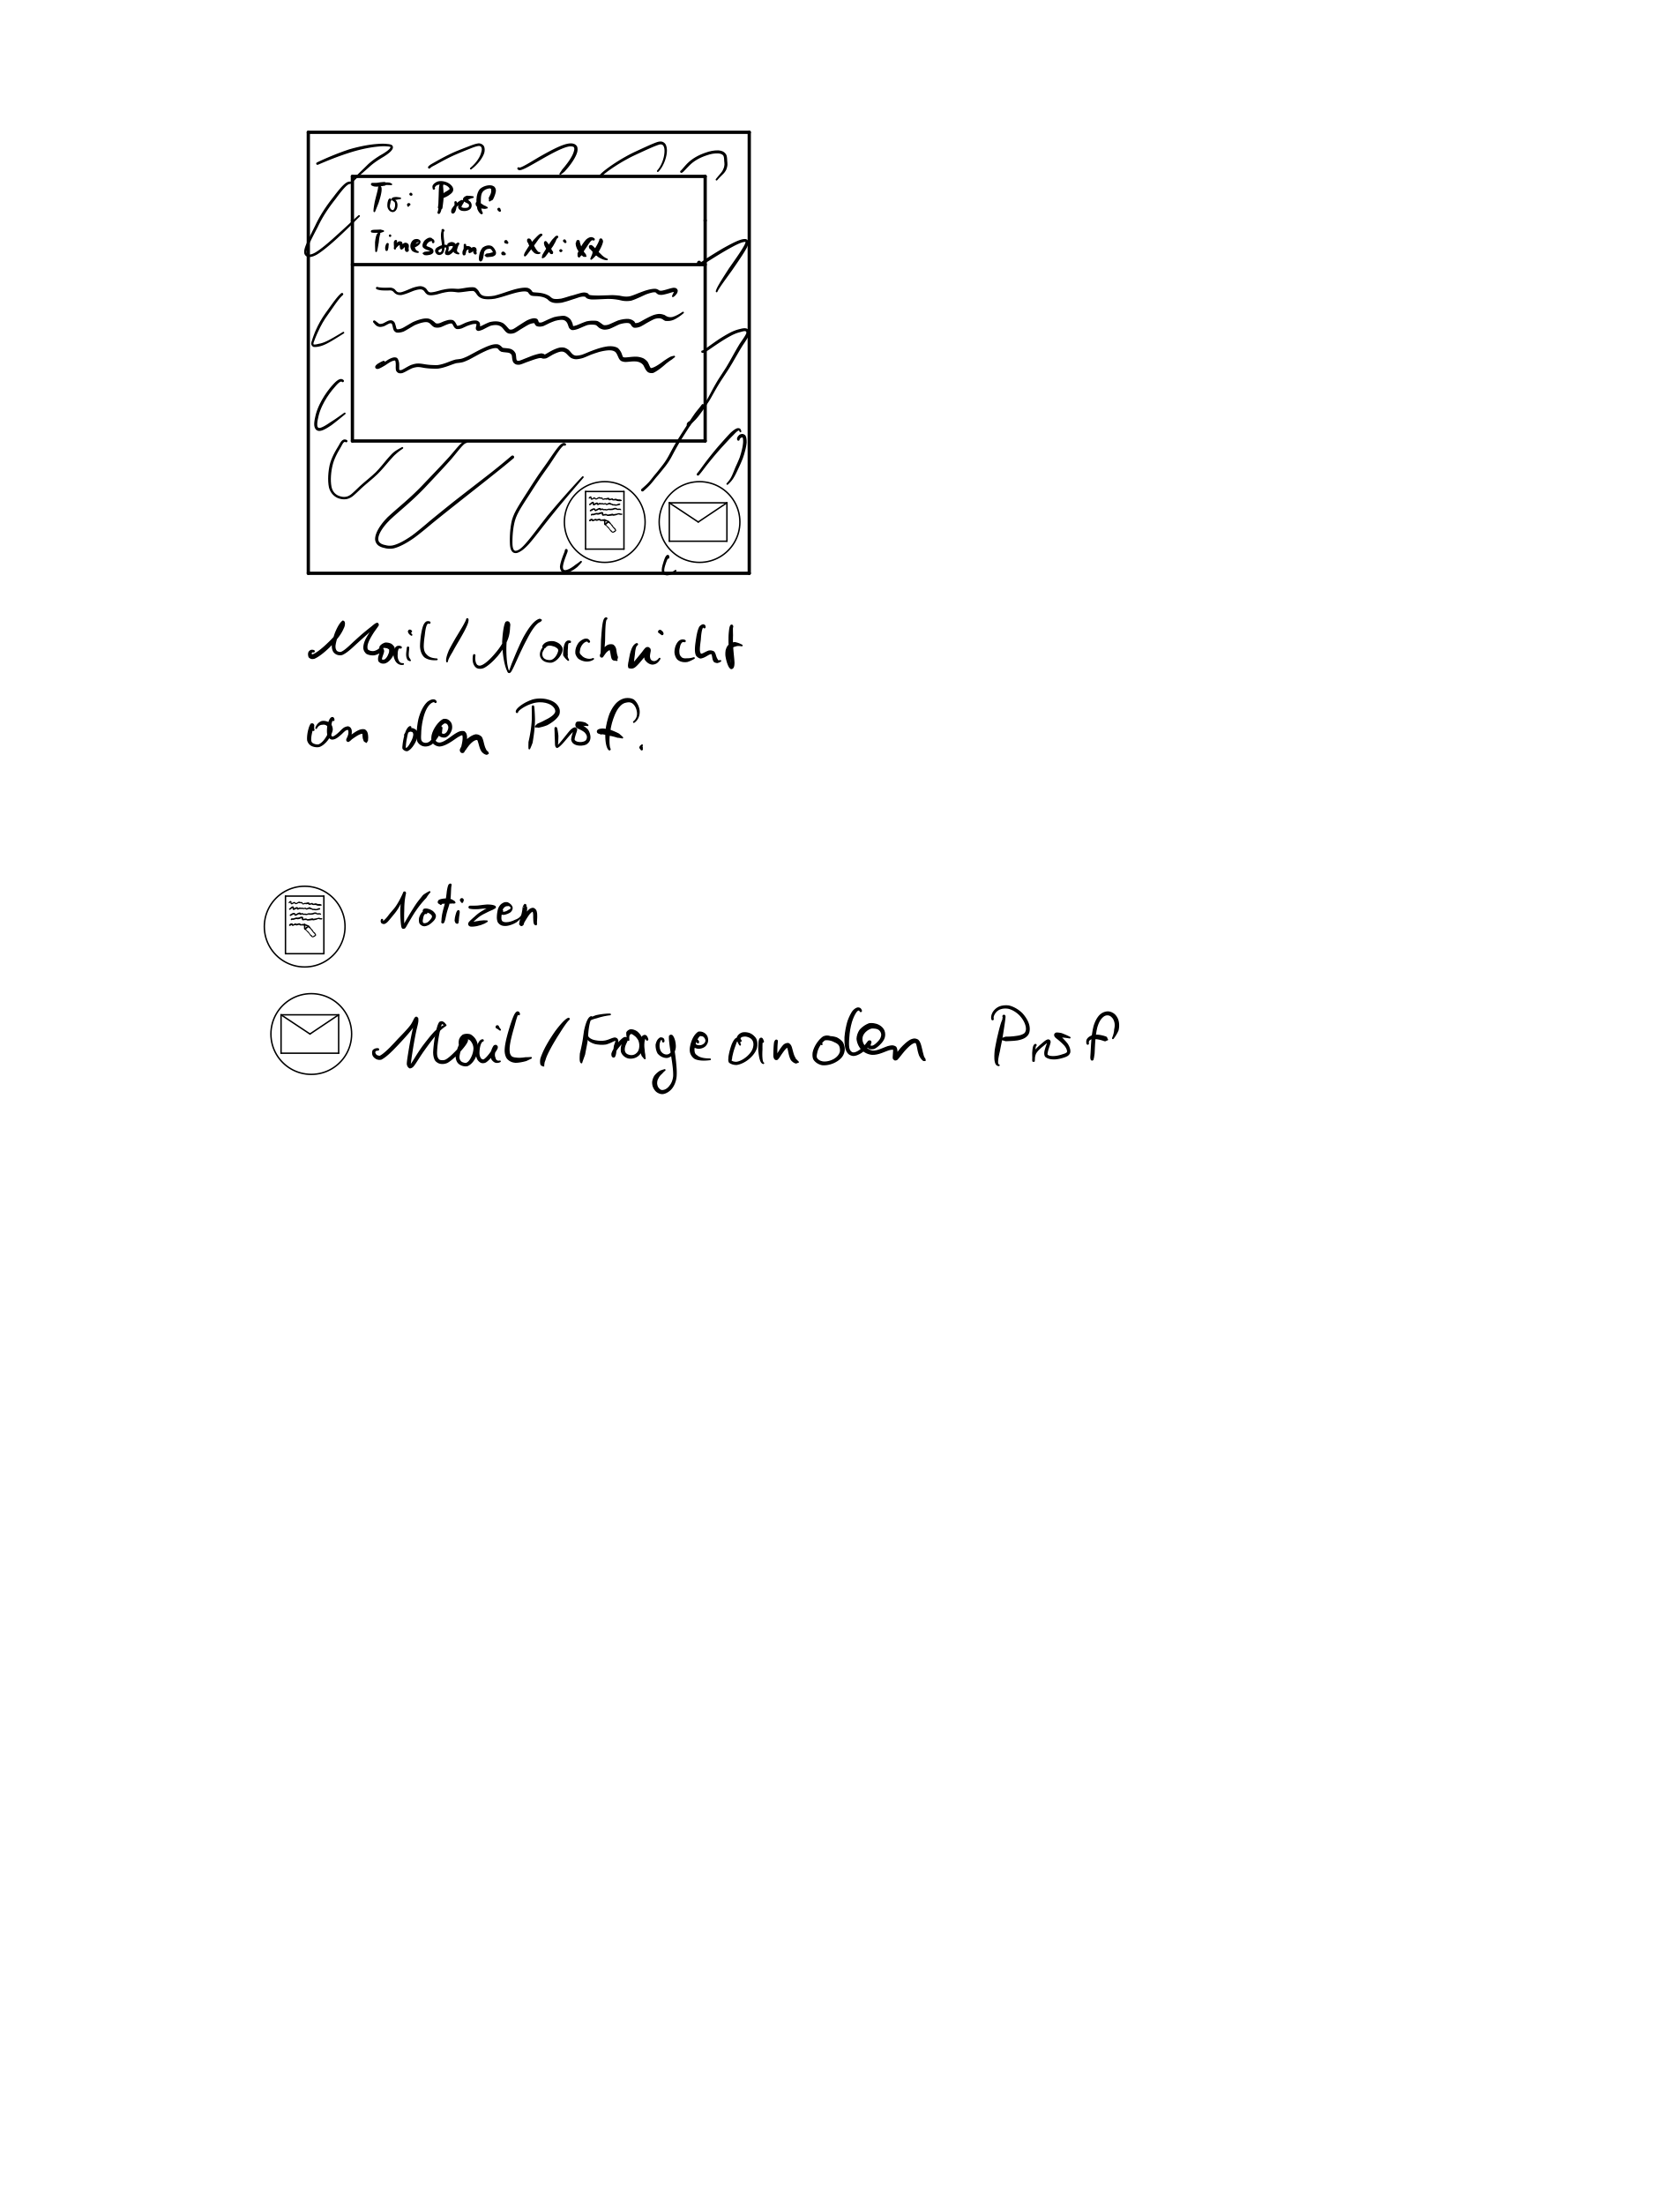 To: Prof.
Timestamp: xx:xx
Mail/Nachricht
an den Prof.
Notizen
Mail/Frage an den Prof